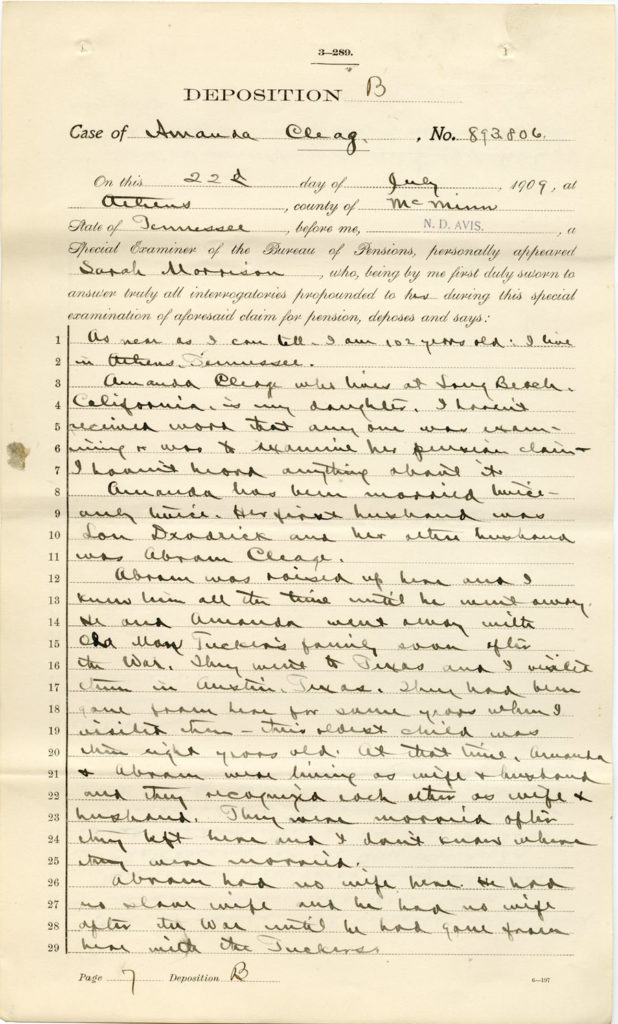 3—289.
DEPOSITION B
Case of Amanda Cleag. , No. 893806.
On this 22d day of July, 1909, at
Athens, county of McMinn
State of Tennessee, before me, N. D. AVIS. , a
Special Examiner of the Bureau of Pensions, personally appeared
Sarah Morrison, who, being by me first duly sworn to
answer truly all interrogatories propounded to her during this special
examination of aforesaid claim for pension, deposes and says:
1 As near as I can tell - I am 102 years old: I live
2 in Athens, Tennessee.
3 Amanda Cleage who lives at Long Beach,
4 California, is my daughter. I haven't
5 received word that any one was exam-
6 ining or was to examine her pension claim -
7 I haven't heard anything about it
8 Amanda has been married twice -
9 only twice. Her first husband was
10 Lon Deadrick and her other husband
11 was Abram Cleage.
12 Abram was raised up here and I
13 knew him all the time until he went away.
14 He and Amanda went away with
15 Old Man Tucker's family soon after
16 the War. They went to Texas and I visited
17 them in Austin, Texas. They had been
18 gone from here for some years when I
19 visited them - their oldest child was
20 then eight years old. At that time, Amanda
21 & Abram were living as wife & husband
22 and they recognized each other as wife &
23 husband. They were married after
24 they left here and I don't know where
25 they were married.
26 Abram had no wife here. He had
27 no slave wife and he had no wife
28 after the War until he had gone from
29 here with the Tuckers.
Page 7 Deposition B
6—197